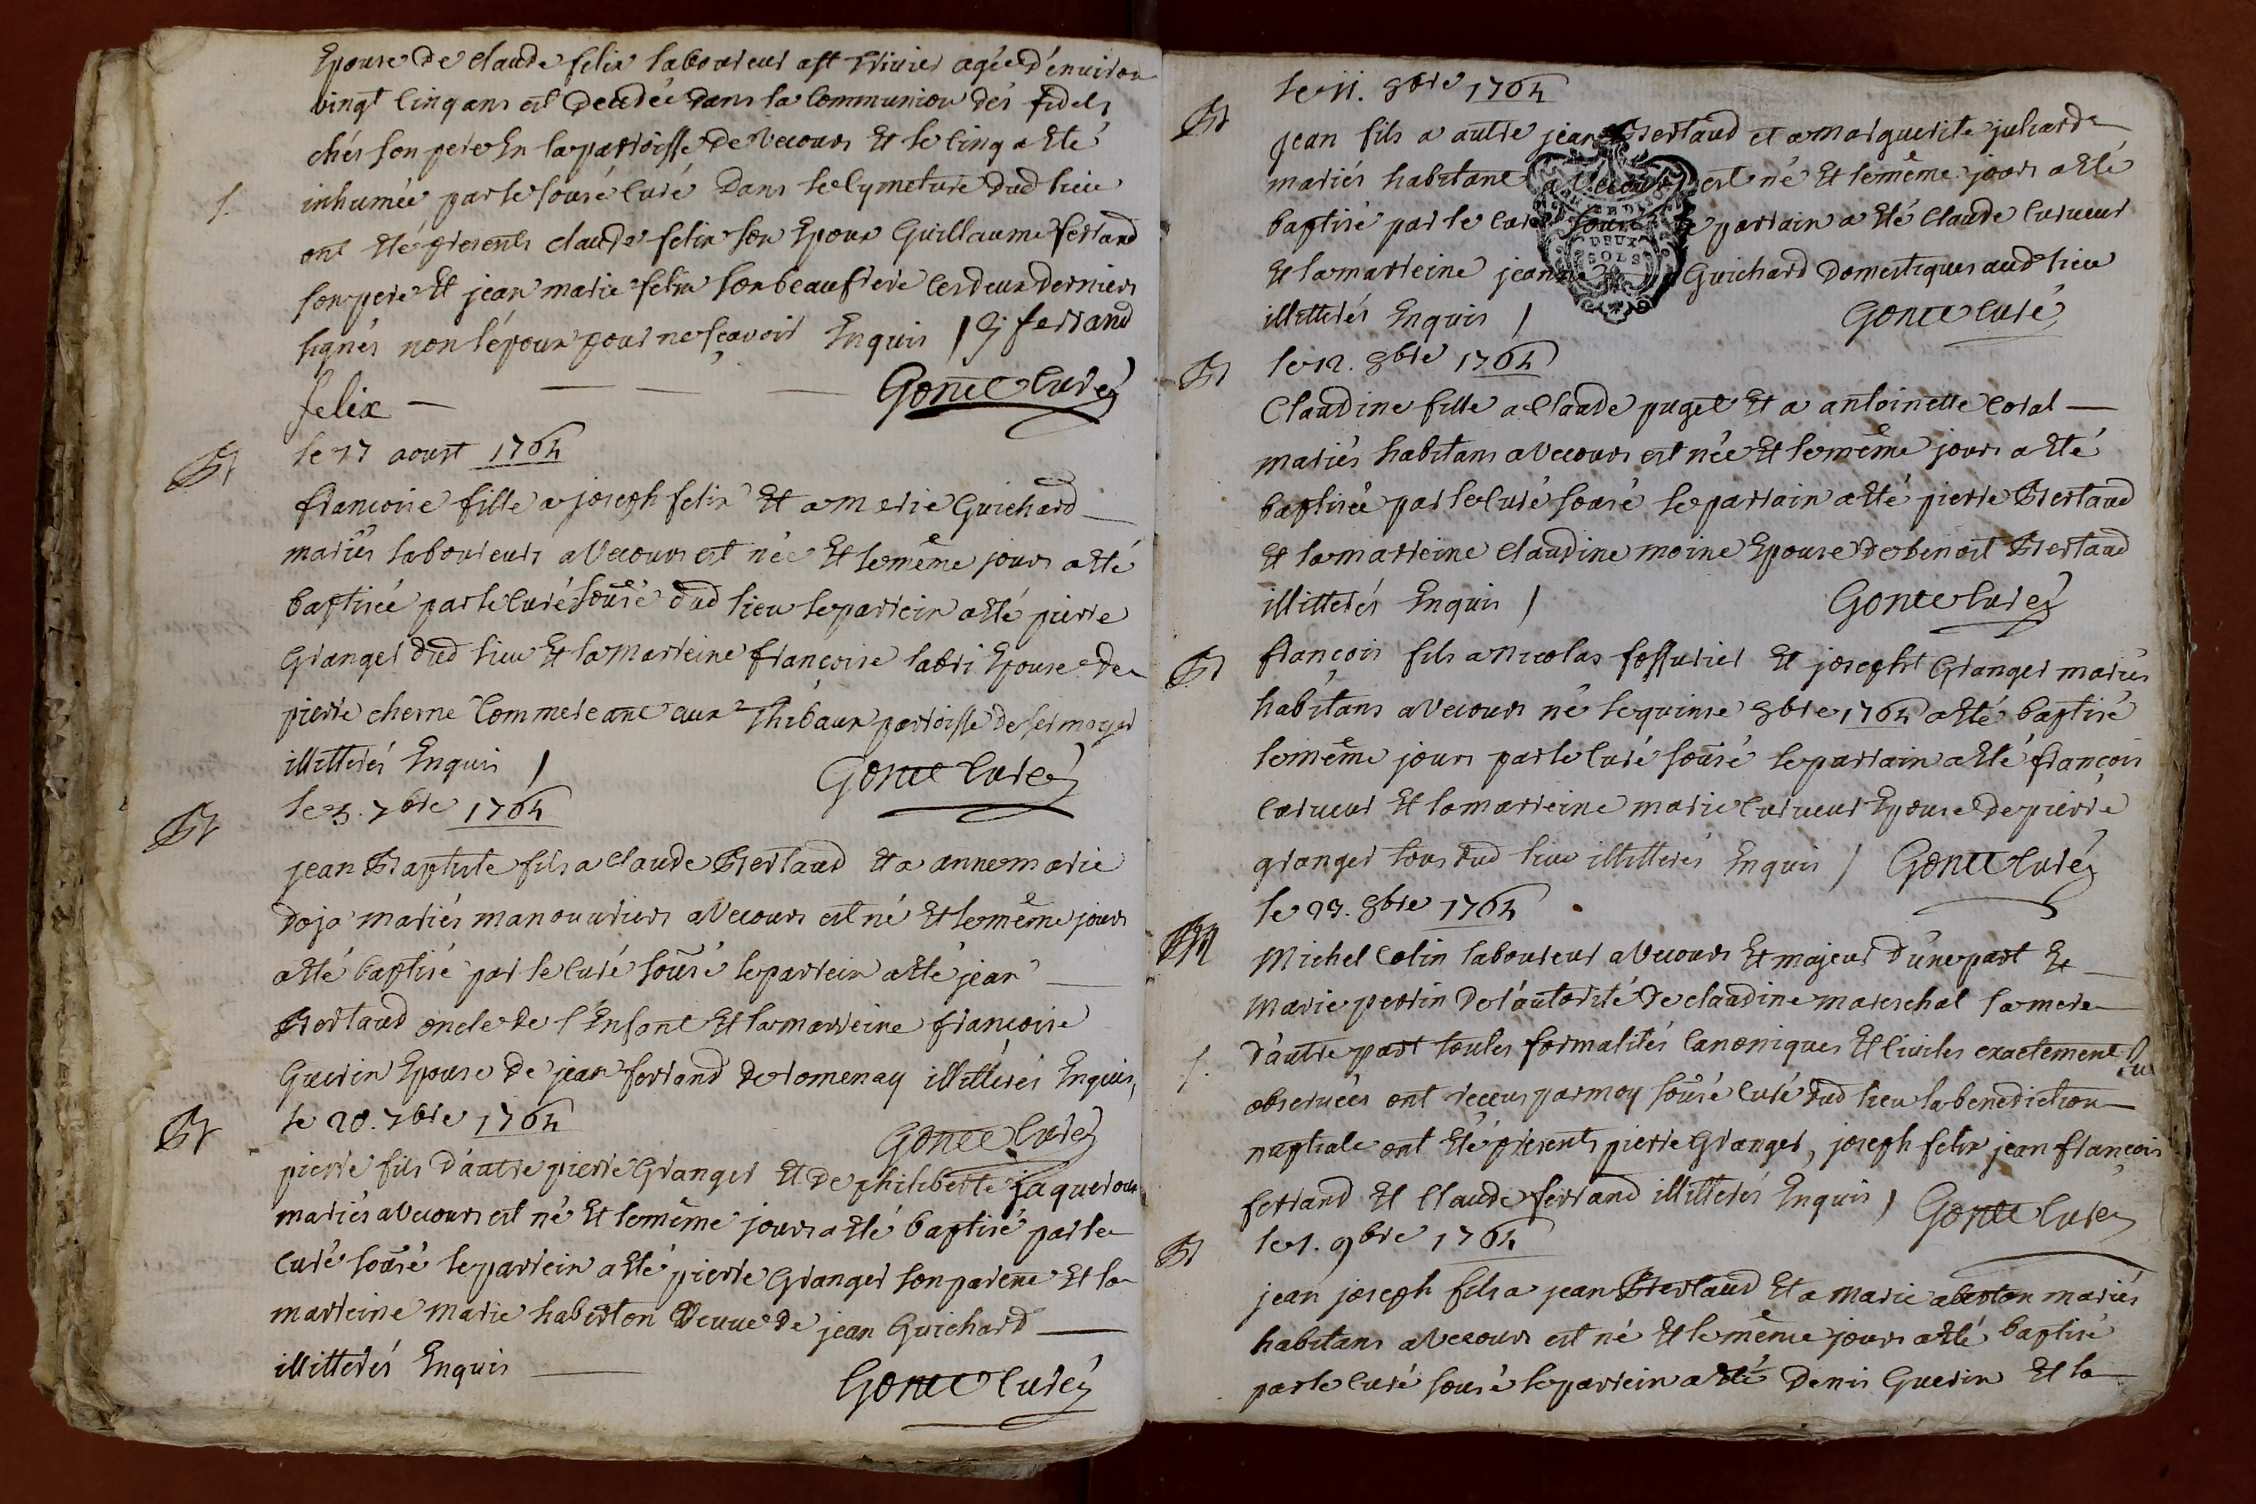 Epouse de claude felix laboureur a st trivier agée d'environ
vingt cinq ans est decedée dans la Communion des fidels
chés son pere En la parroisse de Vecours Et le cinq a Eté
inhumée par le sousé curé dans le cymeture dud lieu
ont Eté presents claude felix son Epoux Guillaume ferrand
son pere Et jean marie felix son beaufrere les deux derniers
signés non l'époux pour ne sçavoir Enquis / G. ferrand
felix — Gonet curé
le 27 aoust 1764
Bt
françoise fille a joseph felix Et a merie Guichard
mariés laboureurs a Vecours est née Et le même jours a Eté
baptisée par le curé sousé dud lieu le parrein a Eté pierre
Granger dud lieu Et la marreine françoise labri Epouse de
pierre cherne Commercant aux Thibaux parroisse de sermoyer
illitterés Enquis / Gonet curé
le 3. 7bre 1764
Bt
jean Baptiste fils a claude Bertaud Et a anne marie
doja mariés manouvriers a Vecours est né Et le même jours
a Eté baptisé par le curé sousé le parrein a Eté jean
Bertaud oncle de l'Enfant Et la marreine françoise
Guerin Epouse de jean ferrand de romenay illitterés Enquis,
le 20. 7bre 1764 Gonet curé
Bt
pierre fils d'autre pierre Granger Et de philiberte jaquerous
mariés a Vecours est né Et le même jours a Eté baptisé par le
curé sousé le parrein a Eté pierre Granger son parent Et la
marreine marie haberton Veuve de jean Guichard
illitterés Enquis Gonet curé
le 11. 8bre 1764
Bt
jean fils a autre jean Bertaud et a marguerite juliard
mariés habitant a Vecours est né Et le même jours a Eté
baptisé par le curé sousé le parrain a Eté Claude curueur
Et la marreine jeanne Guichard domestiques aud lieu
illitterés Enquis / Gonet curé
DEUX
SOLS
le 12. 8bre 1764
Bt
Claudine fille a Claude puget Et a antoinette coral
mariés habitans a Vecours est née Et le même jours a Eté
baptisée par le curé sousé le parrain a Eté pierre Bertaud
Et la marreine claudine moine Epouse de benoist Bertaud
illitterés Enquis / Gonet curé
Bt
françois fils a nicolas fossurier Et josepht Granger mariés
habitans a Vecours né le quinse 8bre 1764 a Eté baptisé
le même jours par le curé sousé le parrain a Eté françois
curueur Et la marreine marie curueur Epouse de pierre
granger tous dud lieu illitterés Enquis / Gonet curé
le 23. 8bre 1764
M
Michel Colin laboureur a Vecours Et majeur d'une part Et
marie perrin de l'autorité de claudine mareschal sa mere
d'autre part toutes formalités Canoniques Et Civiles exactement
observées ont reçeus par moy sousé curé dud lieu la benediction
nuptiale ont Eté presents pierre Granger, joseph felix jean françois
ferrand Et Claude ferrand illitterés Enquis / Gonet curé
le 1. 9bre 1764
Bt
jean joseph fils a jean Bertaud Et a marie aberton mariés
habitans a Vecours est né Et le même jours a Eté baptisé
par le curé sousé le parrein a Eté Denis Guerin Et la